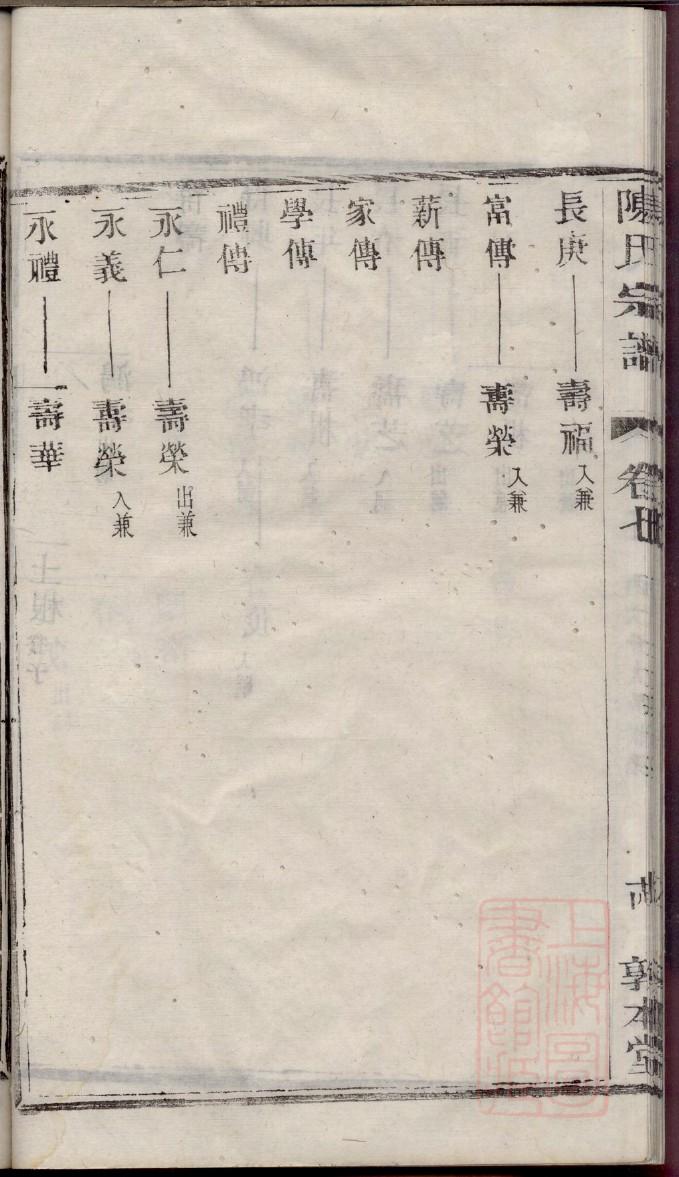 陳氏宗譜
卷
敦本堂
長庚 壽福 入兼
富傳 壽榮 入兼
薪傳
家傳
學傳
禮傳
永仁 壽榮 出兼
永義 壽榮 入兼
永禮 壽華
上海圖書館藏